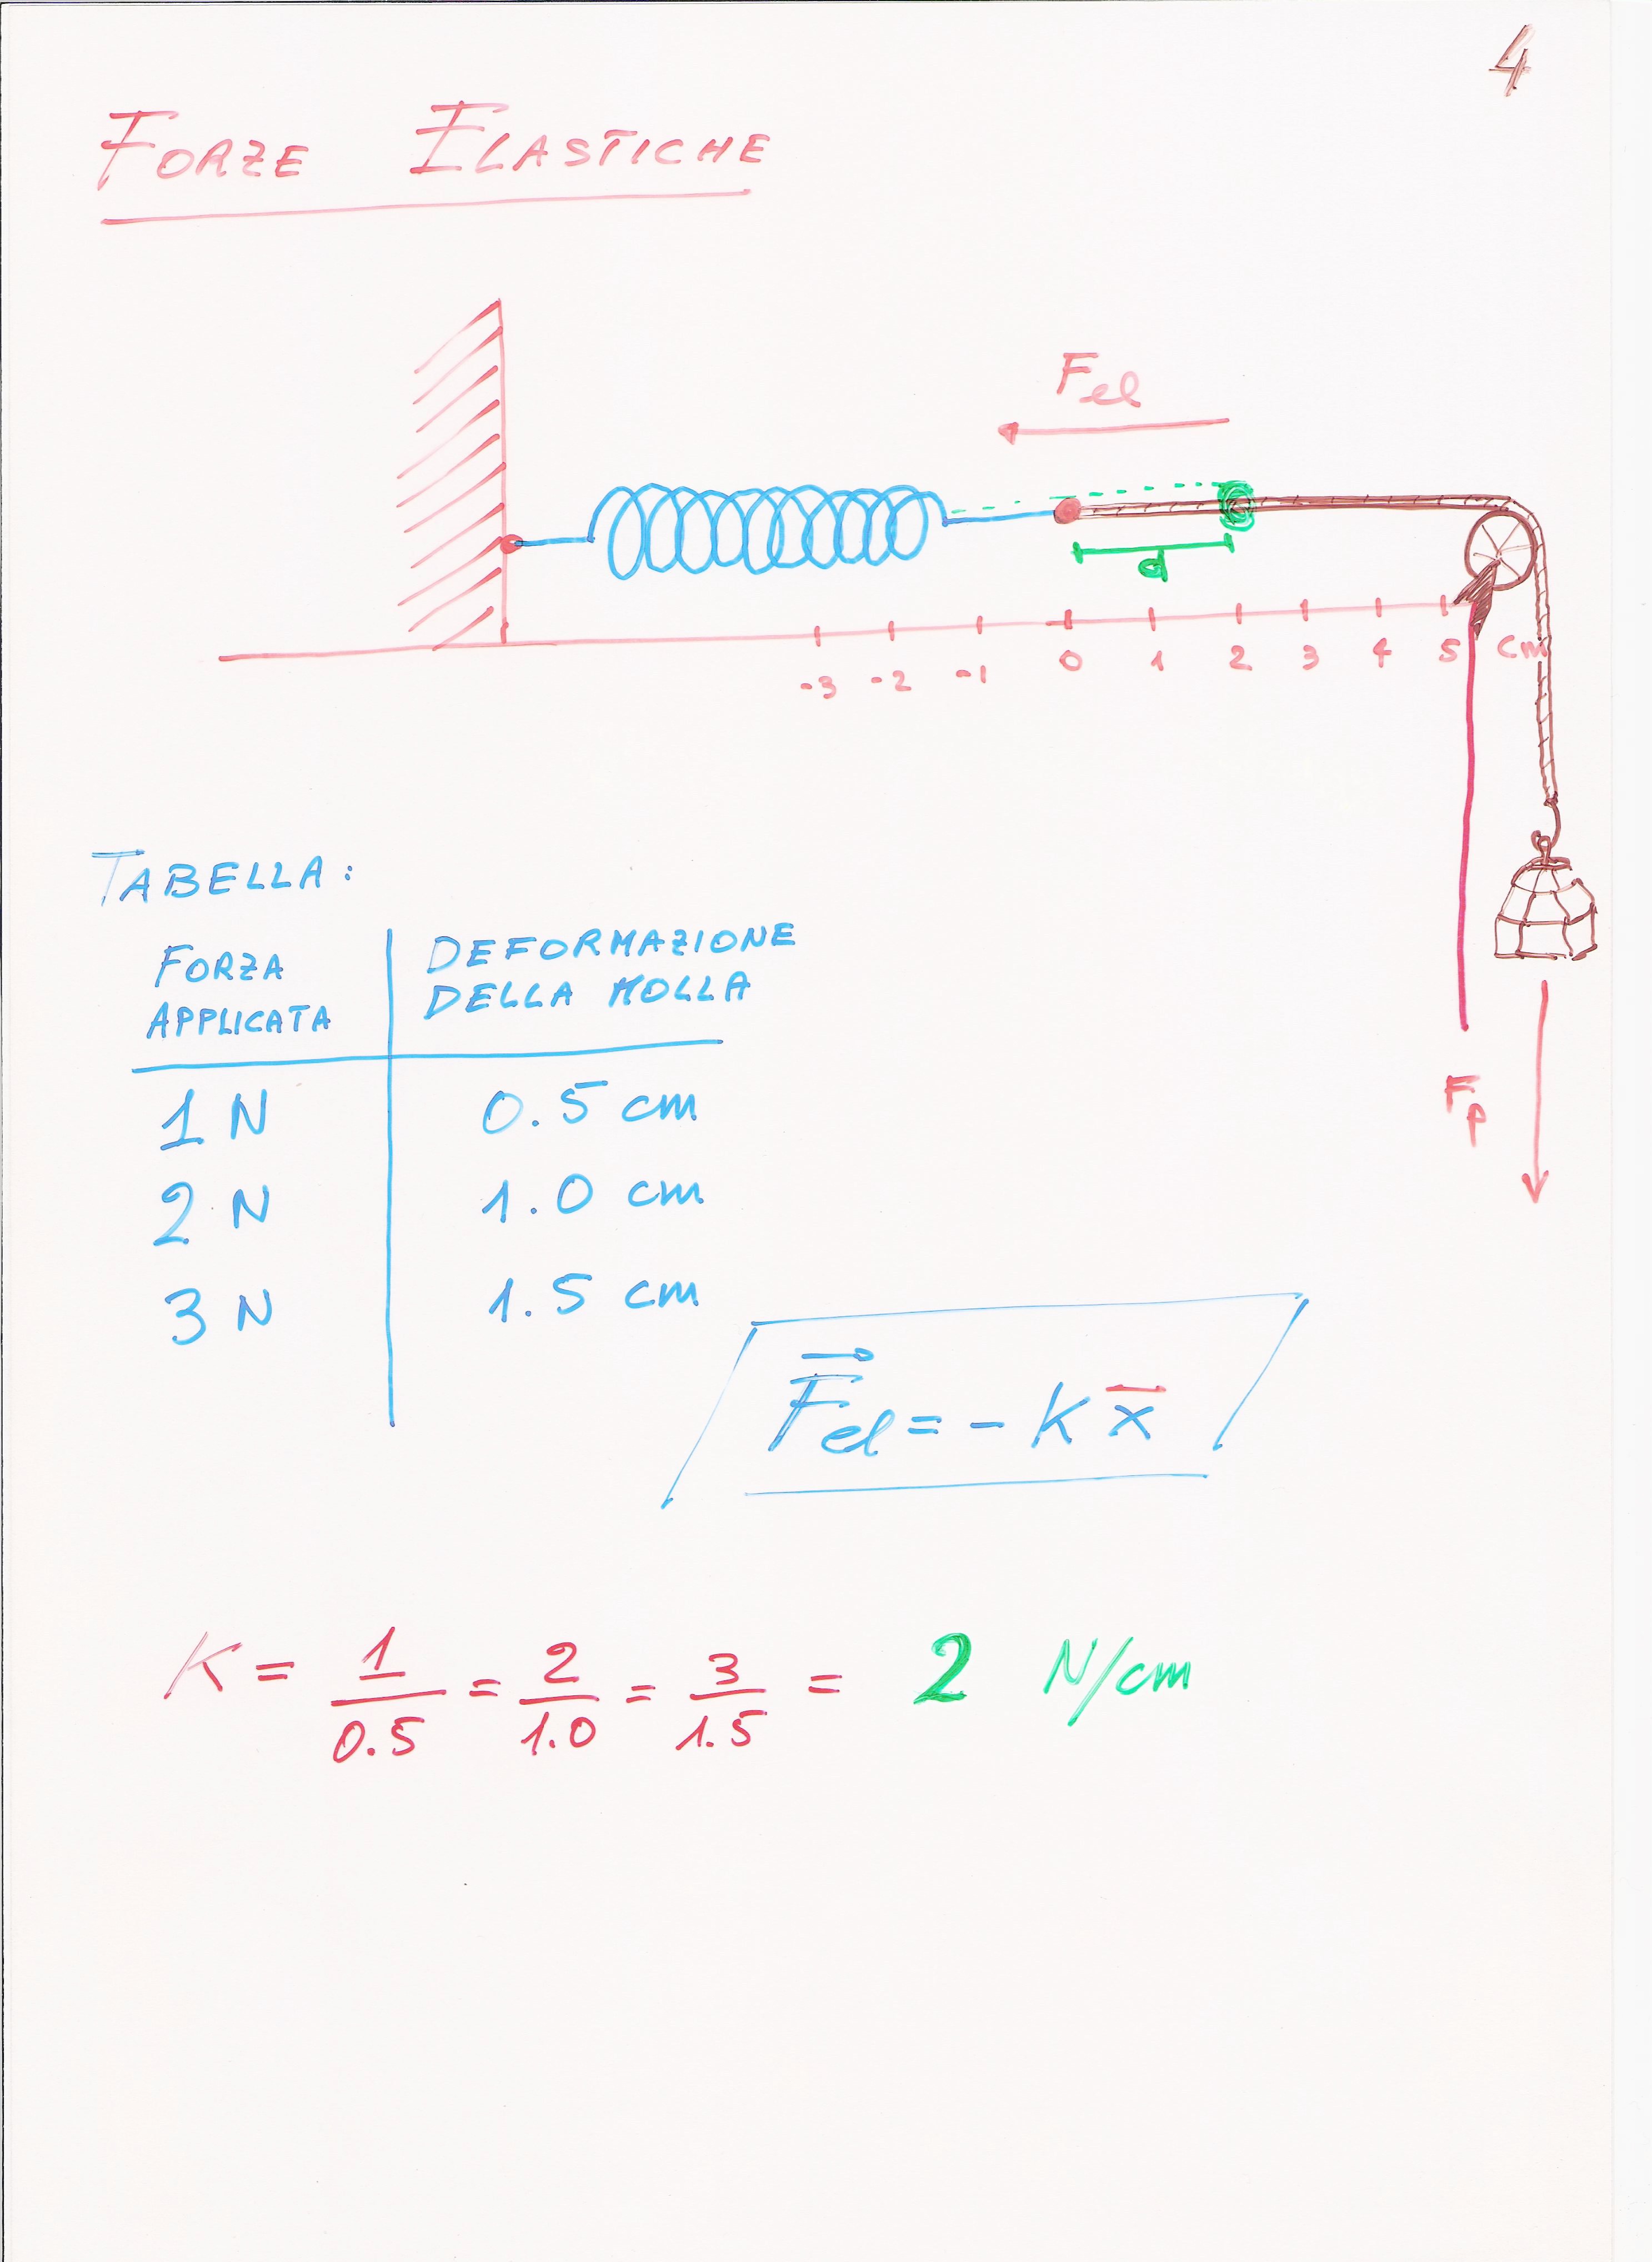 4
FORZE ELASTICHE
Fel
d
-3 -2 -1 0 1 2 3 4 5 cm
TABELLA:
FORZA APPLICATA
DEFORMAZIONE DELLA MOLLA
1 N 0.5 cm
2 N 1.0 cm
3 N 1.5 cm
Fp
Fel = - K x
K = 1/0.5 = 2/1.0 = 3/1.5 = 2 N/cm